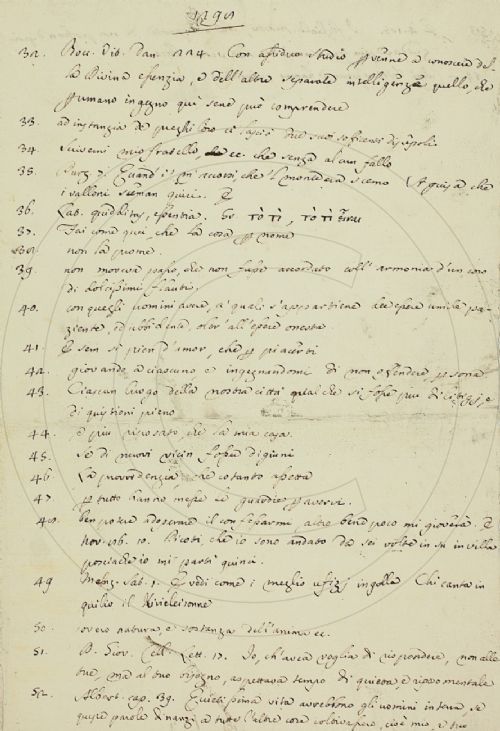 1298
32. Bocc. Vit. Dan. 224. Con assiduo studio pervenne a conoscer del
la Divina essenzia, e dell'altre separate intelligenze quello, che
per umano ingegno quì sene può comprendere
33. ad instanzia de' preghi loro ci lasciò due suoi
34. mio fratello ec. che senza alcun fallo
35. Purg. 7. Quand'i' m'accorsi, che 'l monte era scemo A guisa che
i valloni sceman quici.
36. Lab. quidditas, essentia. Gr. τὸ τί, τὸ τί
37. Fai come quei, che la cosa per nome
38. non la prome.
39. non moveva passo, che non fusse accordato coll'armonia d'un coro
di dolcissimi flauti.
40. con quegli uomini avere, a' quali s'appartiene d'essere umile pa-
ziente, ed ubbidiente, oltr'all'essere onesta.
41. E sem sì pien d'amor, che per piacerti
42. giovando a ciascuno e ingegnandomi di non offendere persona
43. Ciascun luogo della nostra città qual che si fosse più di litigj, e
di quistioni pieno
44. è più riposato, che la mia casa.
45. se di nuovi vicin fosser digiuni
46 La provvidenzia, che cotanto assetta
47. per tutto hanno messe le guardie per avervi.
48. ben potre' adoperarmi il confessarmi, altro bene poco mi gioverà. E
nov. 96. 10. Dicoti, che io sono andato da sei volte in su in villa
posciachè io mi partì quinci.
49 Menz. sat. 1. E vedi come i meglio ufizj ingolle Chi canta in
quilio il Kirieleisonne
50. ovvero natura, e sostanza dell'anima ec.
51. D. Giov. Cell. Lett. 17. Io, ch'avea voglia di rispondere, non alle
tue, ma al tuo bisogno, aspettava tempo di quiete, e riposo mentale
52. Albert. cap. 39. Quietissima vita avrebbono gli uomini in terra, se
queste parole dinanzi a tutte l'altre cose , cioè mio, e tuo